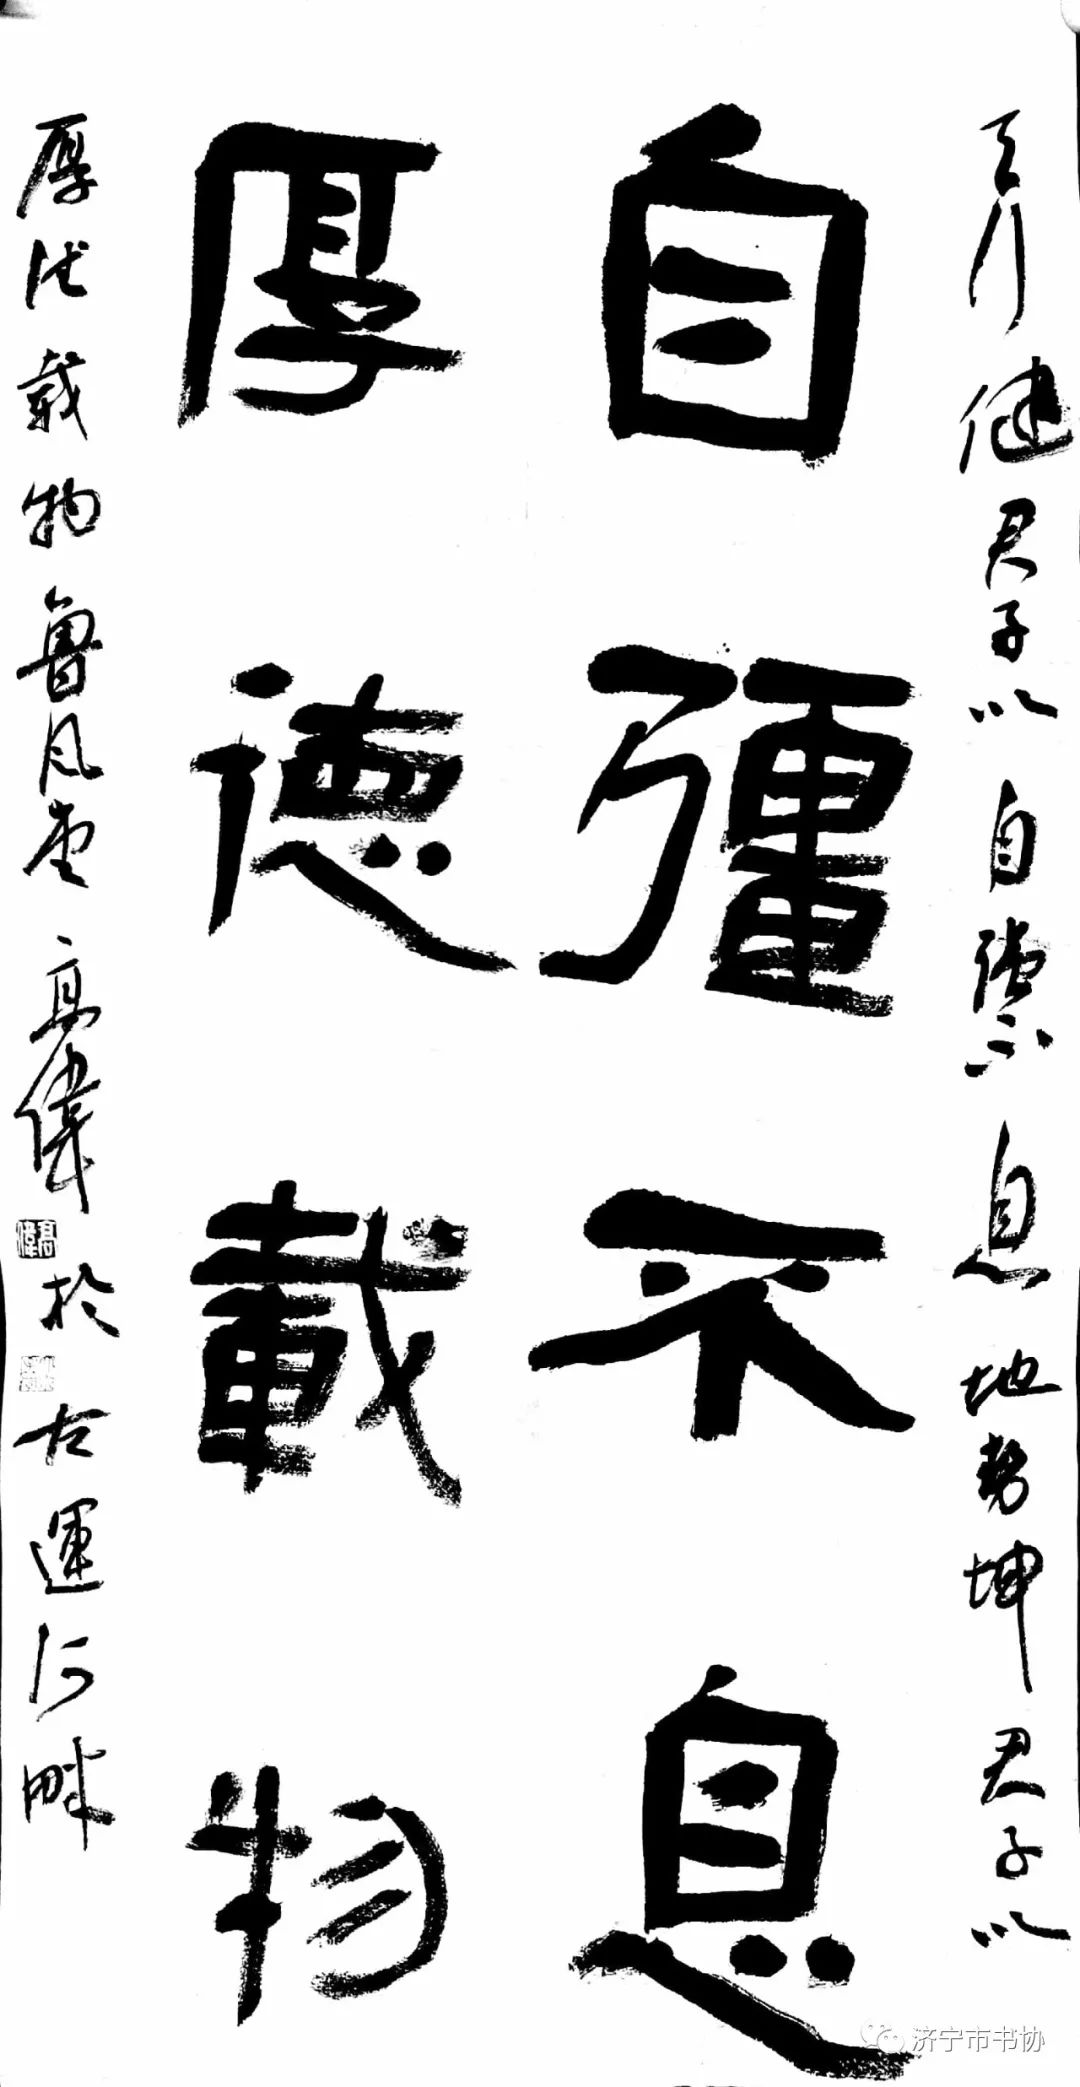 天行健君子以自强不息地势坤君子以
自彊不息
厚德載物
厚德载物魯风堂高偉於古運河畔
高偉
济宁市书协